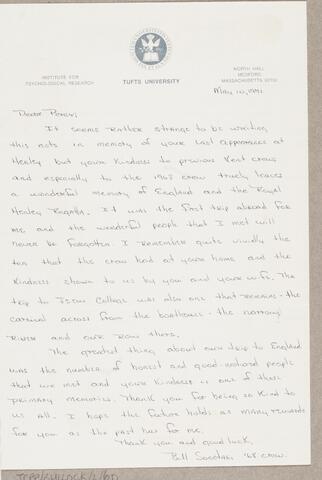 INSTITUTE FOR
PSYCHOLOGICAL RESEARCH
TUFTS UNIVERSITY
NORTH HALL
MEDFORD
MASSACHUSETTS 02155
May 10, 1971
Dear
It seems rather strange to be writing
this note in memory of your last appearance at
Henley but your kindness to previous Kent crews
and especially to the 1968 crew truely leaves
a wonderful memory of England and the Royal
Henley Regatta. It was the first trip abroad for
me and the wonderful people that I met will
never be forgotten. I remember quite vividly the
tea that the crew had at your home and the
kindness shown to us by you and your wife. The
trip to Jesus College was also one that remains - the
carnival across from the boathouse - the narrow
river and our row there.
The greatest thing about our trip to England
was the number of honest and good-natured people
that we met and your kindness is one of these
primary memories. Thank you for being so kind to
us all. I hope the future holds as many rewards
for you as the past has for me.
Thank you and good luck,
Bill '68 crew.